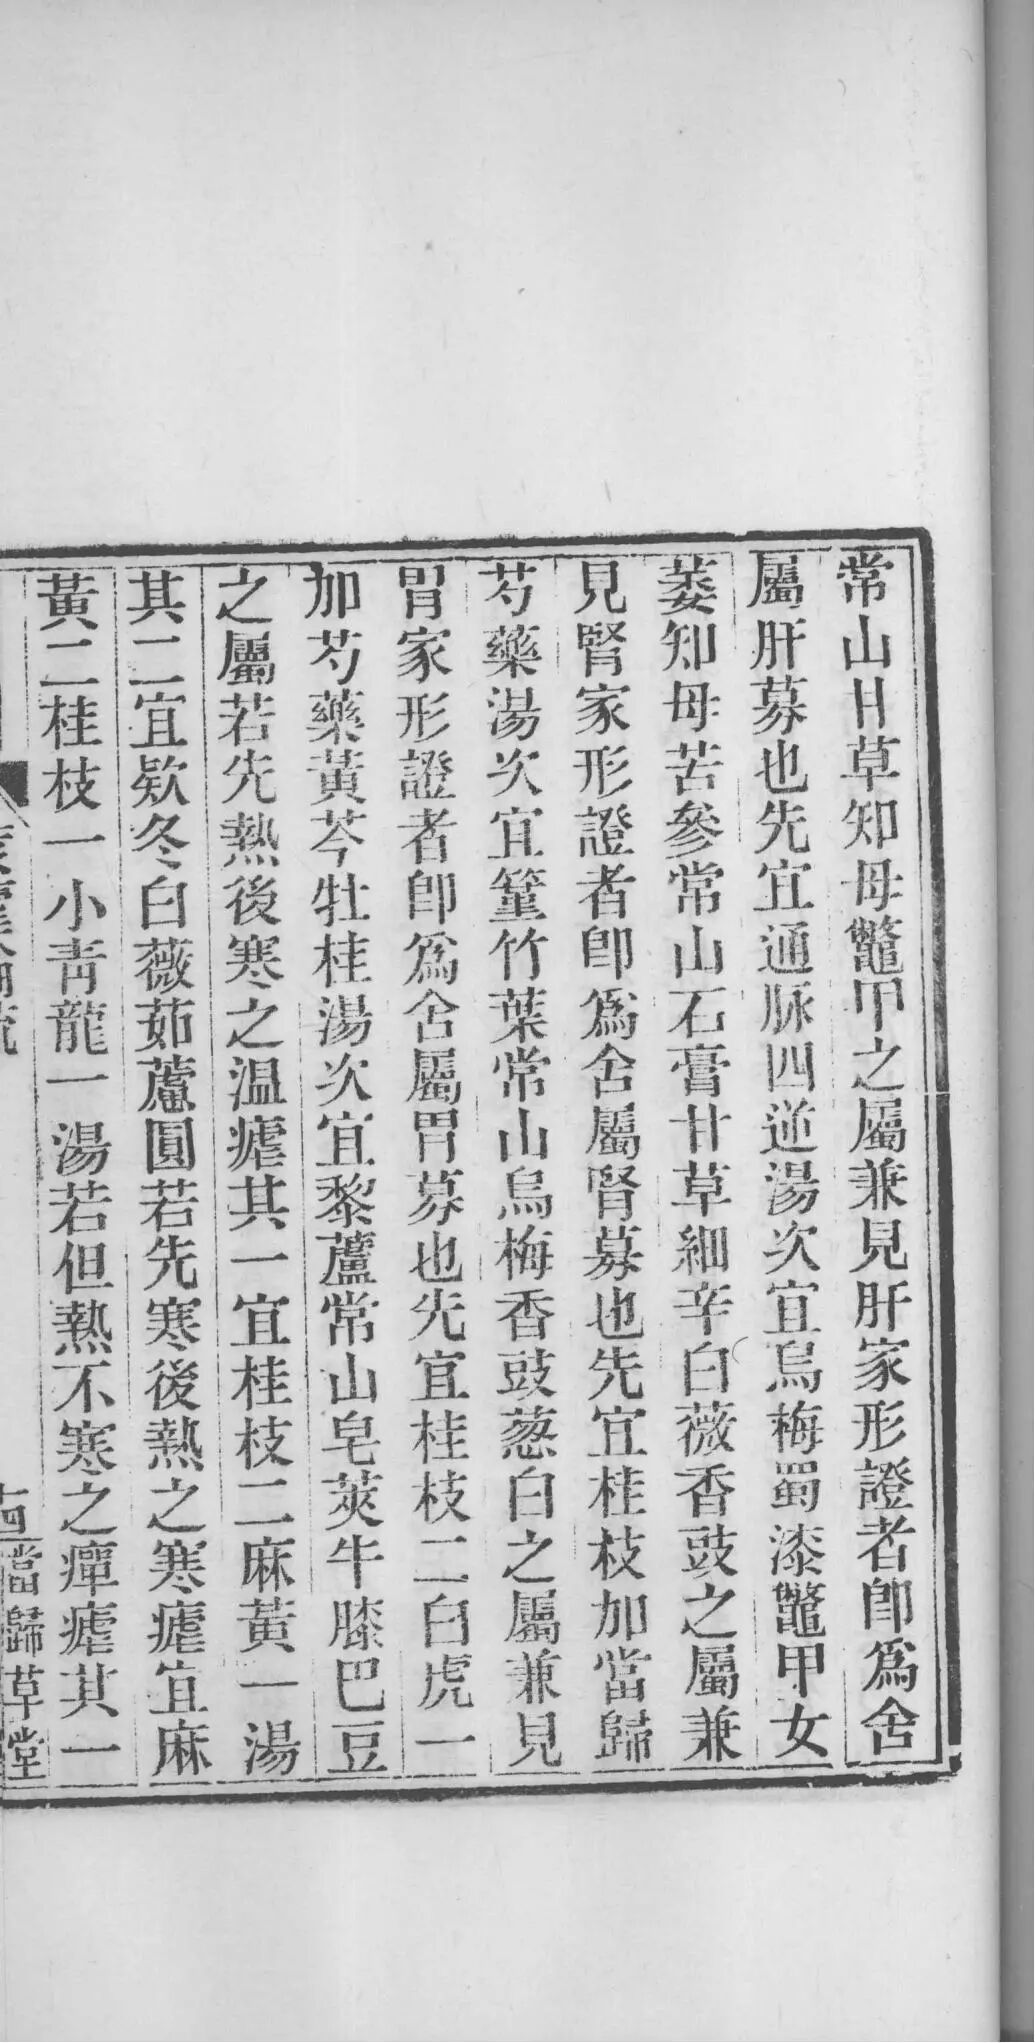 常山甘草知母鼈甲之屬兼見肝家形證者卽爲舍
屬肝募也先宜通脉四逆湯次宜烏梅蜀漆鼈甲女
萎知母苦參常山石膏甘草細辛白薇香豉之屬兼
見腎家形證者卽爲舍屬腎募也先宜桂枝加當歸
芍藥湯次宜篁竹葉常山烏梅香豉葱白之屬兼見
胃家形證者卽爲舍屬胃募也先宜桂枝二白虎一
加芍藥黃芩牡桂湯次宜黎蘆常山皂莢牛膝巴豆
之屬若先熱後寒之温瘧其一宜桂枝二麻黃一湯
其二宜欵冬白薇茹蘆圓若先寒後熱之寒瘧宜麻
黃二桂枝一小青龍一湯若但熱不寒之癉瘧其一
當歸草堂